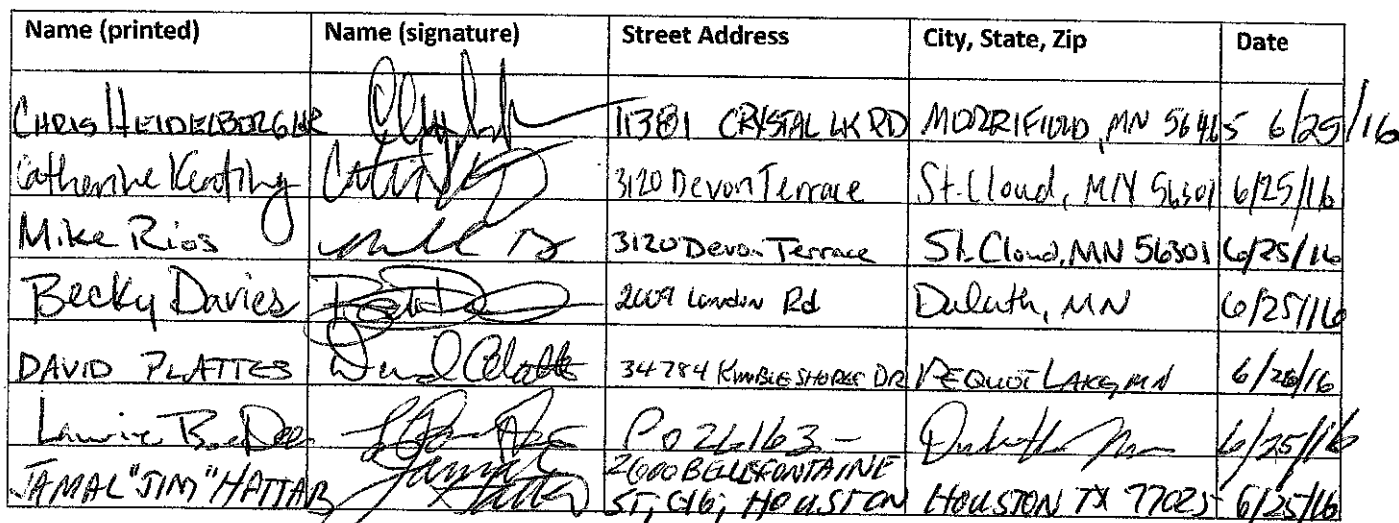 Name (printed) Name (signature) Street Address City, State, Zip Date
CHRIS HEIDELBERGER 11381 CRYSTAL LK RD MERRIFIELD, MN 56465 6/25/16
Catherine Keating 3120 Devon Terrace St. Cloud, MN 56301 6/25/16
Mike Rios 3120 Devon Terrace St. Cloud, MN 56301 6/25/16
Becky Davies London Rd Duluth, MN 6/25/16
DAVID PLATTES 34784 KIMBLE SHORES DR PEQUOT LAKES, MN 6/25/16
Laurie PO Duluth Mn 6/25/16
JAMAL "JIM" HATTAB 2600 BELLEFONTAINE
ST, C16, HOUSTON HOUSTON TX 77025 6/25/16